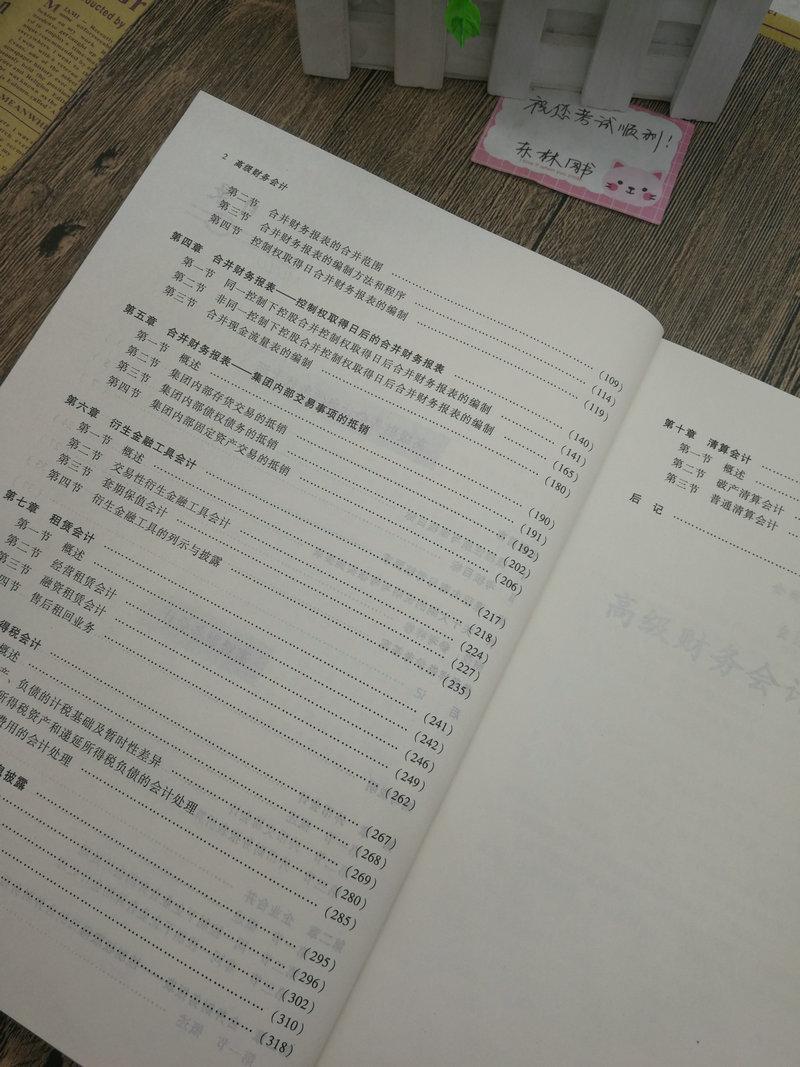 MEANWH
祝您考试顺利!
东林图书
2 高级财务会计
第二节 合并财务报表的合并范围 (109)
第三节 合并财务报表的编制方法和程序 (114)
第四节 控制权取得日合并财务报表的编制 (119)
第四章 合并财务报表——控制权取得日后的合并财务报表 (140)
第一节 同一控制下控股合并控制权取得日后合并财务报表的编制 (141)
第二节 非同一控制下控股合并控制权取得日后合并财务报表的编制 (165)
第三节 合并现金流量表的编制 (180)
第五章 合并财务报表——集团内部交易事项的抵销 (190)
第一节 概述 (191)
第二节 集团内部存货交易的抵销 (192)
第三节 集团内部债权债务的抵销 (202)
第四节 集团内部固定资产交易的抵销 (206)
第六章 衍生金融工具会计 (217)
第一节 概述 (218)
第二节 交易性衍生金融工具会计 (224)
第三节 套期保值会计 (227)
第四节 衍生金融工具的列示与披露 (235)
第七章 租赁会计 (241)
第一节 概述 (242)
第二节 经营租赁会计 (246)
第三节 融资租赁会计 (249)
四节 售后租回业务 (262)
得税会计 (267)
概述 (268)
产、负债的计税基础及暂时性差异 (269)
所得税资产和递延所得税负债的会计处理 (280)
费用的会计处理 (285)
息披露 (295)
(296)
(302)
(310)
(318)
第十章 清算会计
第一节 概述
第二节 破产清算会计
第三节 普通清算会计
后 记
高级财务会计